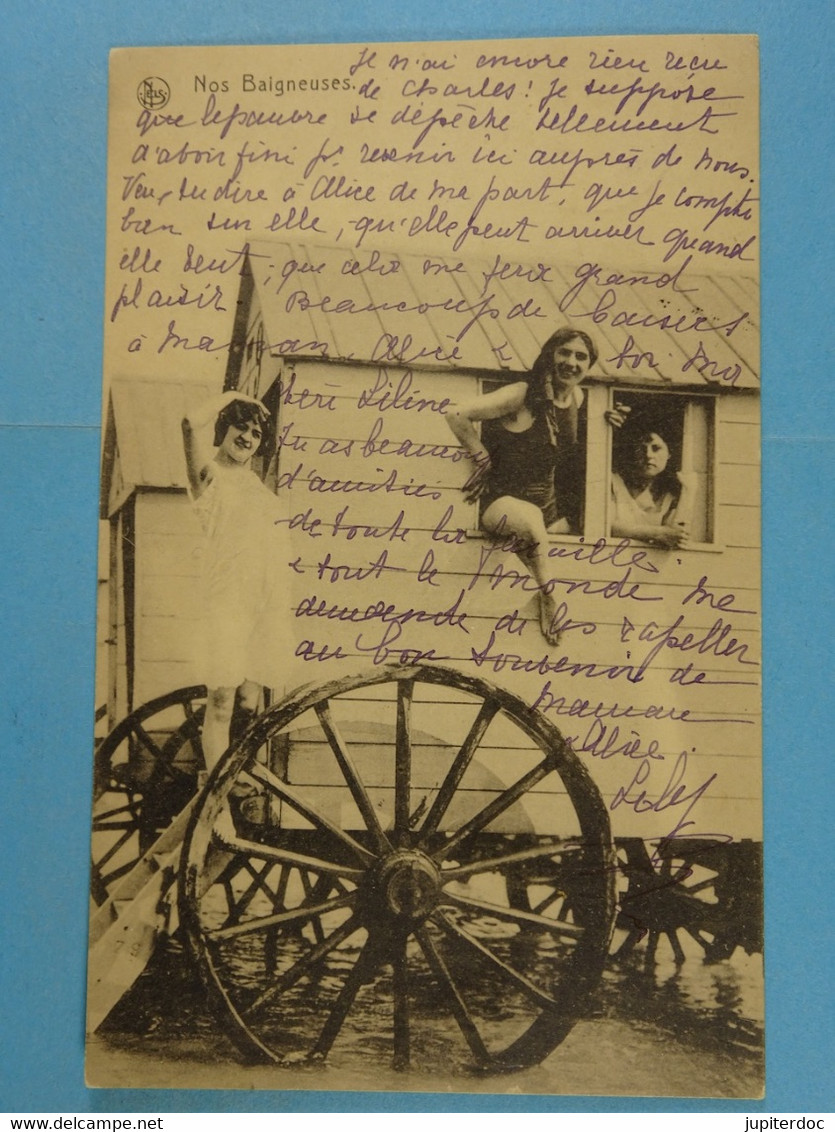 NELS
Nos Baigneuses.
Je n'ai encore rien reçu
de Charles! Je suppose
que le pauvre se dépêche tellement
d'avoir fini pr. revenir ici auprès de nous.
Veux-tu dire à Alice de ma part, que je compte
bien sur elle, qu'elle peut arriver quand
elle veut; que cela me fera grand
plaisir Beaucoup de baisers
à Maman, Alice & toi ma
chère Liline.
Tu as beaucoup
d'amitiés
de toute la famille.
& tout le monde me
demande de les rappeler
au bon souvenir de
Maman
& Alice.
Lily
www.delcampe.net
jupiterdoc